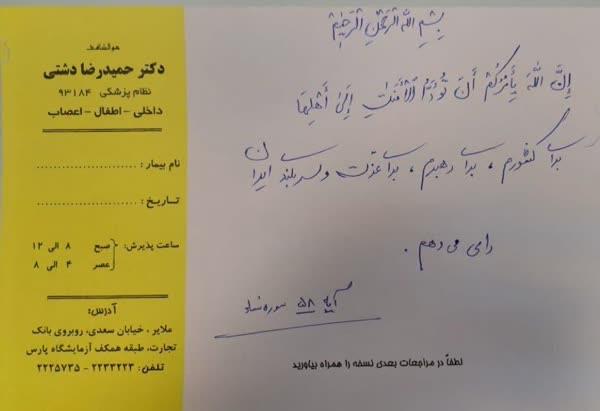 هوالشافی
دکتر حمیدرضا دشتی
نظام پزشکی ۹۳۱۸۴
داخلی - اطفال - اعصاب
نام بیمار : ........................
تاریخ : ........................
ساعت پذیرش: صبح ۸ الی ۱۲
عصر ۴ الی ۸
آدرس:
ملایر ، خیابان سعدی، روبروی بانک
تجارت، طبقه همکف آزمایشگاه پارس
تلفن : ۲۲۳۳۲۲۳ - ۲۲۲۵۷۳۵
بِسْمِ اللهِ الرَّحْمنِ الرَّحِیمِ
إِنَّ اللهَ یَأْمُرُکُمْ أَنْ تُؤَدُّوا الْأَمَنَتِ إِلَى أَهْلِهَا
برای کشورم ، برای رهبرم ، برای عزت و سربلندی ایران
رای می دهم .
آیه ۵۸ سوره نساء
لطفاً در مراجعات بعدی نسخه را همراه بیاورید